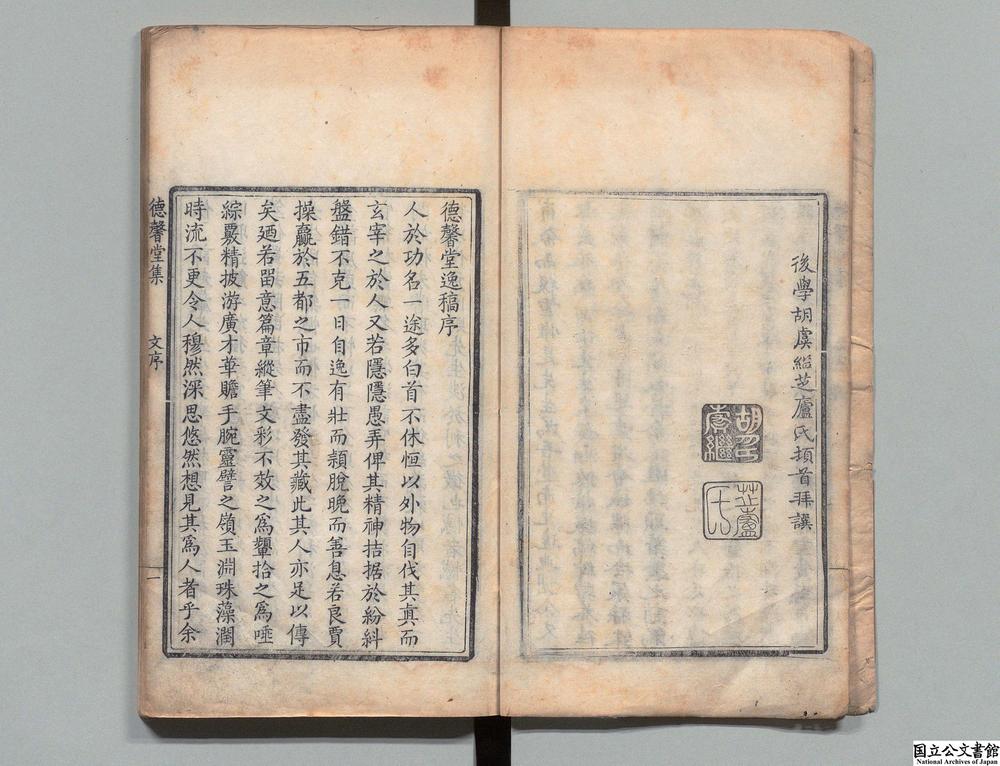 後學胡虞繼芝廬氏頓首拜譔
胡虞繼印
芝廬氏
德馨堂逸稿序
人於功名一途多白首不休恒以外物自伐其真而
玄宰之於人又若隱隱愚弄俾其精神拮据於紛糾
盤錯不克一日自逸有壯而頴脫晚而善息若良賈
操贏於五都之市而不盡發其藏此其人亦足以傳
矣廼若畱意篇章縱筆文彩不效之為顰拾之為唾
綜覈精披游廣才華贍手腕靈譬之嶺玉淵珠藻潤
時流不更令人穆然深思悠然想見其為人者乎余
德馨堂集
文序
一
国立公文書館
National Archives of Japan